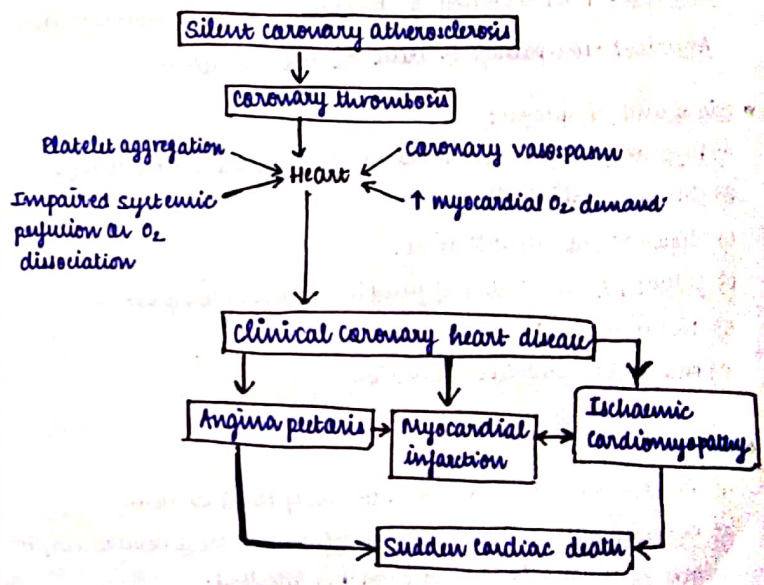 Silent coronary atherosclerosis
coronary thrombosis
Platelet aggregation
coronary vasospasm
Heart
Impaired systemic
perfusion or O₂
dissociation
↑ myocardial O₂ demand
clinical coronary heart disease
Angina pectoris
Myocardial
infarction
Ischaemic
cardiomyopathy
Sudden cardiac death